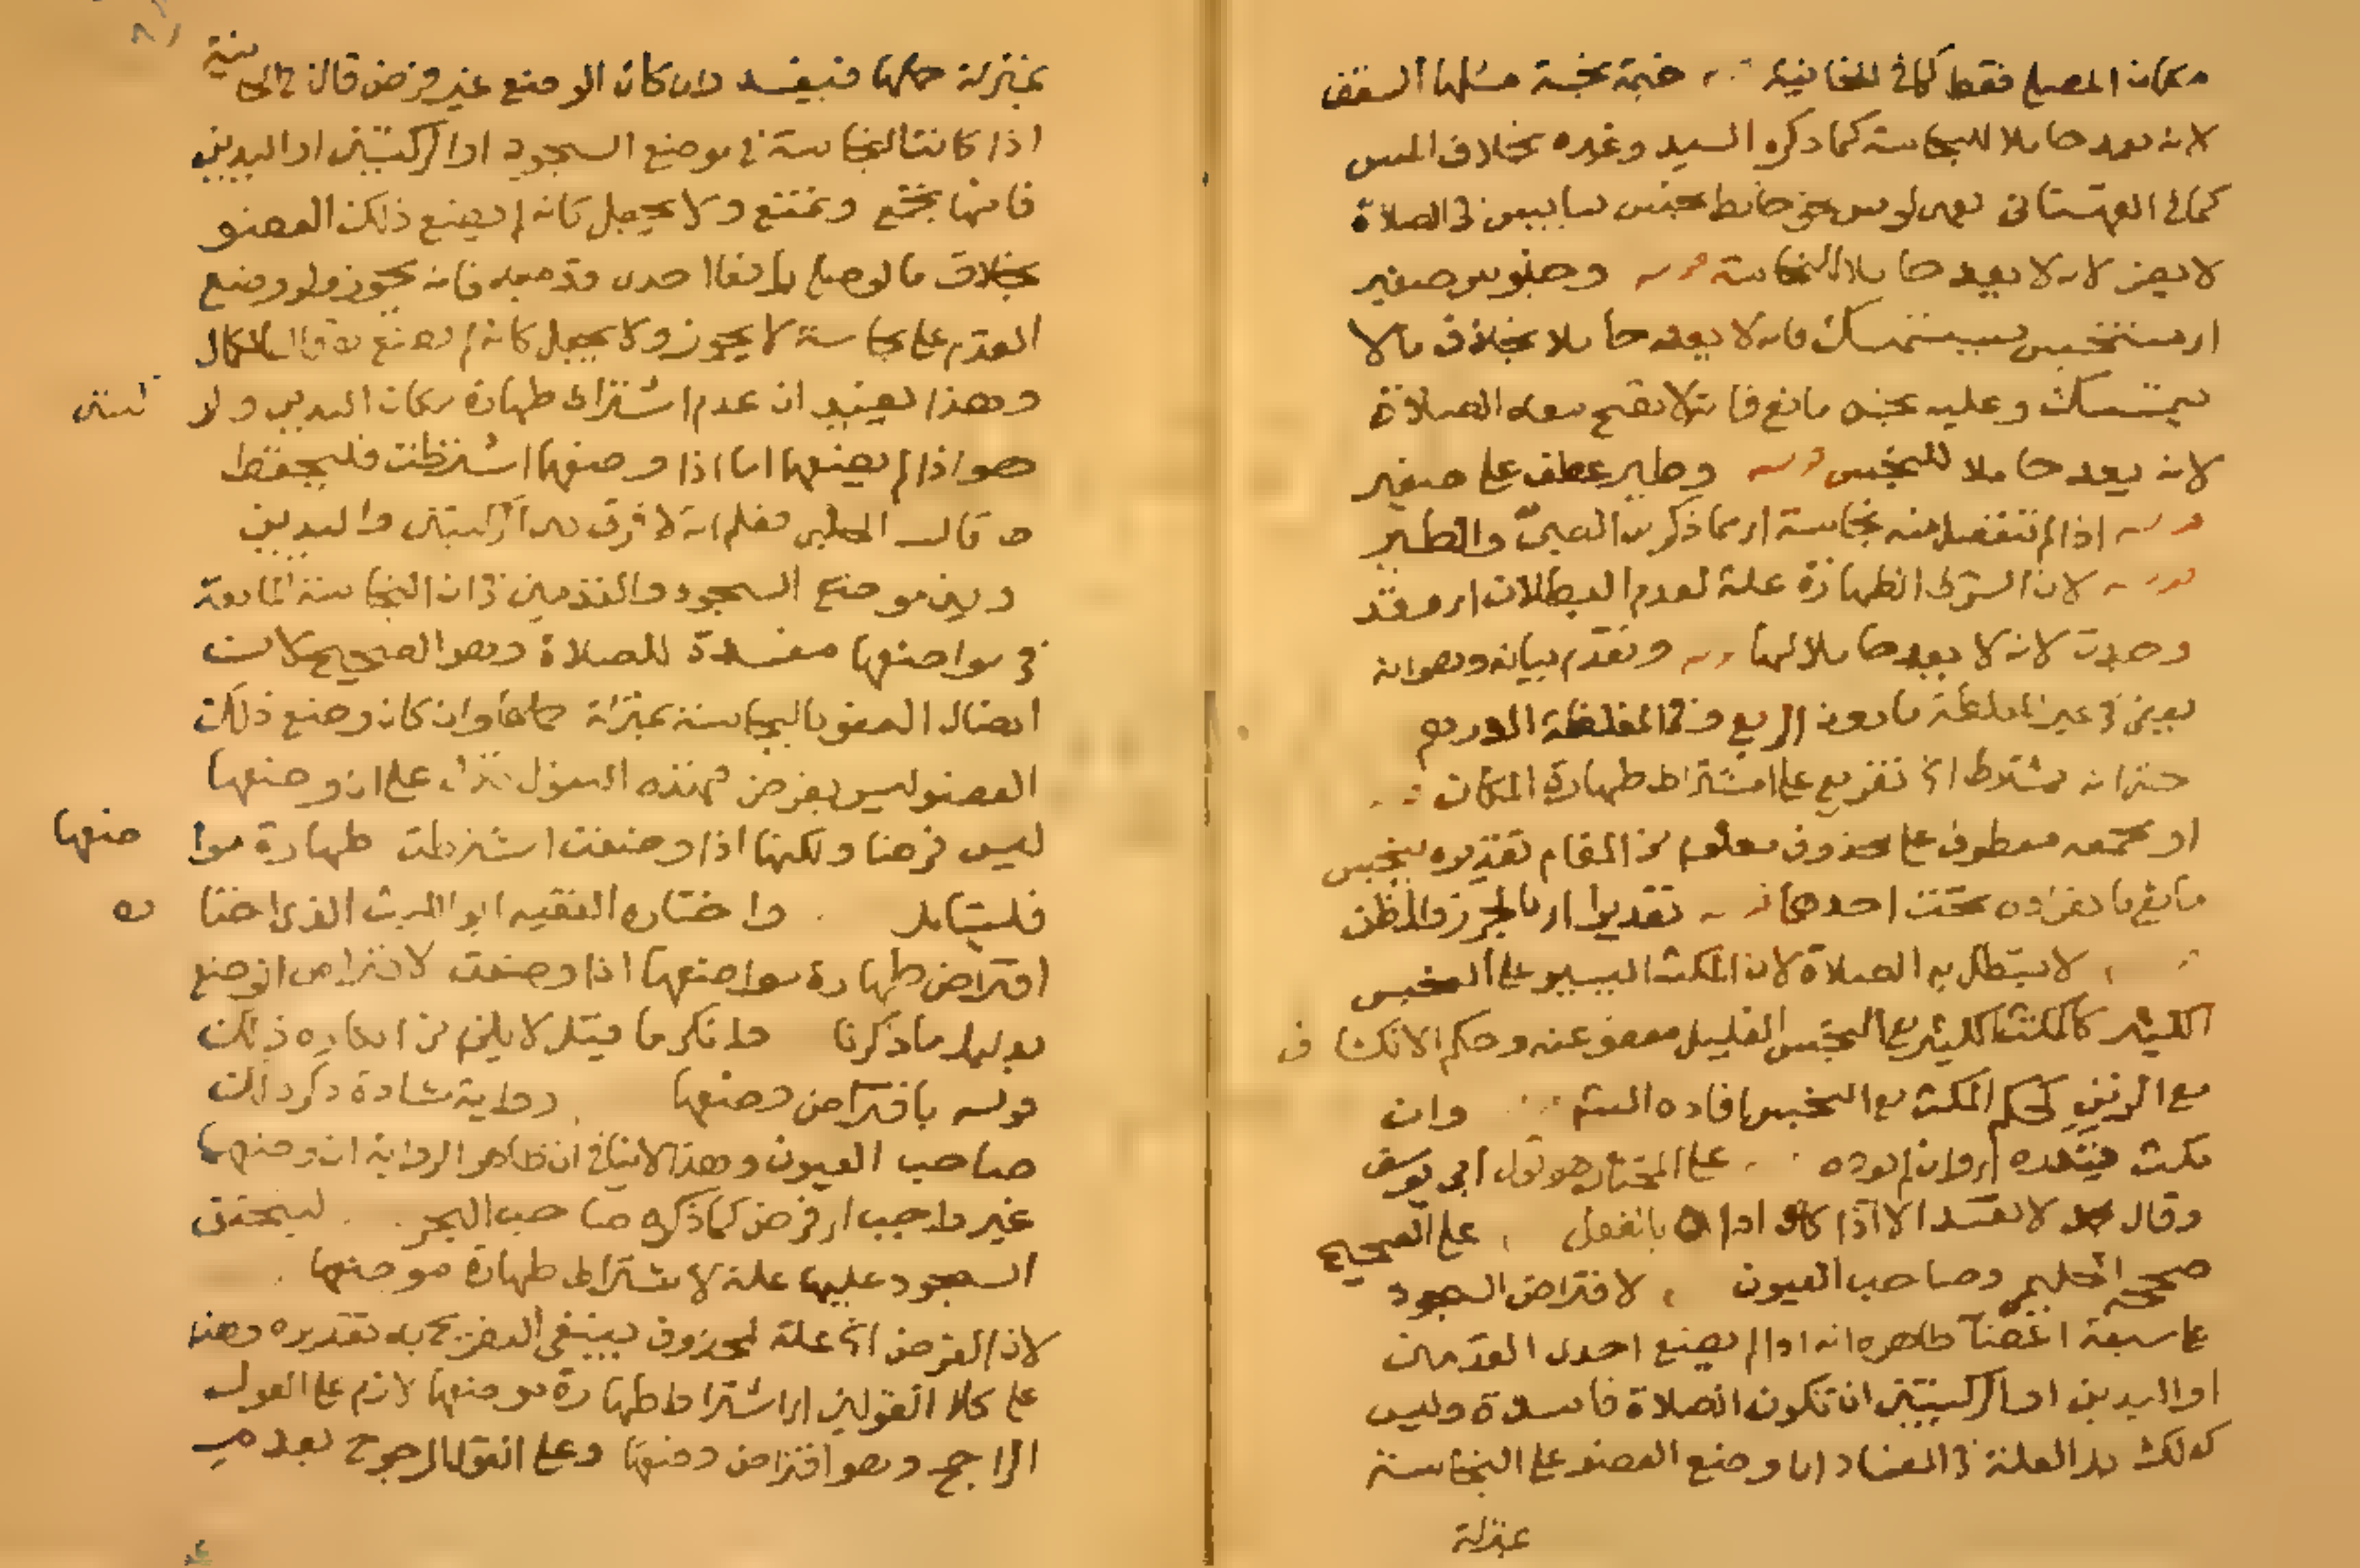 مكان المصلي فقط كما في الخانية خيمة نجسة مثلها السقف
لانه يعد حاملا للنجاسة كما ذكره السيد وغيره بخلاف المس
كما في القهستاني يعني لو مس نحو حائط نجس بثيابه في الصلاة
لا يضر لانه لا يعد حاملا للنجاسة قوله وجلوس صغير
اي متنجس يستمسك فانه لا يعد حاملا بخلاف ما لا
يستمسك وعليه نجس مانع فانه لا تصح معه الصلاة
لانه يعد حاملا للنجس قوله وطير عطف على صغير
قوله اذا لم تنفصل منه نجاسة اي مما ذكر من الصبي والطير
قوله لان الشرط الطهارة علة لعدم البطلان اي وقد
وجدت لانه لا يعد حاملا لها قوله وتقدم بيانه وهو انه
يعفى في غير المغلظة ما دون الربع وفي المغلظة الدرهم
حتى انه يشترط الخ تفريع على اشتراط طهارة المكان
او بجمعه معطوف على محذوف معلوم من المقام تقديره بنجس
مانع بانفراده تحت احدهما قوله تقديرا اي بالحزر والظن
لا تبطل به الصلاة لان المكث اليسير على النجس
الكثير كالمكث الكثير مع النجس القليل معفو عنه وحكم الانكشاف
مع الزمن كحكم المكث مع النجس افاده السيد وان
مكث قدره اي وان لم يوده على المختار هو قول ابي يوسف
وقال محمد لا تفسد الا اذا كان اداء بالفعل على الصحيح
صححه الحلبي وصاحب العيون لافتراض السجود
على سبعة اعضا ظاهره انه اذا لم يضع احدى القدمين
او اليدين او الركبتين ان تكون الصلاة فاسدة وليس
كذلك بل العلة في الفساد ان وضع العضو على النجاسة
بمنزلة
بمنزلة حملها فيفسد وان كان الوضع غير فرض قال في الخانية
اذا كانت النجاسة في موضع السجود او الركبتين او اليدين
فانها تجمع وتمنع ولا يجعل كانه لم يضع ذلك العضو
بخلاف ما لو صلى رافعا احدى قدميه فانه يجوز ولو وضع
القدم على نجاسة لا يجوز ولا يجعل كانه لم يضع قال الكمال
وهذا يفيد ان عدم اشتراط طهارة مكان اليدين والركبتين
هو اذا لم يضعها اما اذا وضعها اشترطت فليحفظ
وقال الحلبي فعلم انه لا فرق بين الركبتين واليدين
وبين موضع السجود والقدمين في ان النجاسة المانعة
في مواضعها مفسدة للصلاة وهو الصحيح لان
اتصال العضو بالنجاسة بمنزلة حملها وان كان وضع ذلك
العضو ليس بفرض فهذه النقول تدل على ان وضعها
ليس فرضا ولكنها اذا وضعت اشترطت طهارة مواضعها
فليتامل واختاره الفقيه ابو الليث الذي اختاره
افتراض طهارة مواضعها اذا وضعت لا افتراض الوضع
بدليل ما ذكرنا وانكر ما قيل لا يلزم من انكاره ذلك
قوله بافتراض وضعها رواية شاذة ذكر ذلك
صاحب العيون وهذا لا ينافي ان ظاهر الرواية ان وضعها
غير واجب اي فرض كما ذكره صاحب البحر ليتحقق
السجود عليها علة لاشتراط طهارة موضعها
لان الفرض الخ علة لمحذوف ينبغي التصريح به تقديره وهذا
على كلا القولين اي اشتراط طهارة موضعها لازم على القول
الراجح وهو افتراض وضعها وعلى القول المرجوح بعدمه